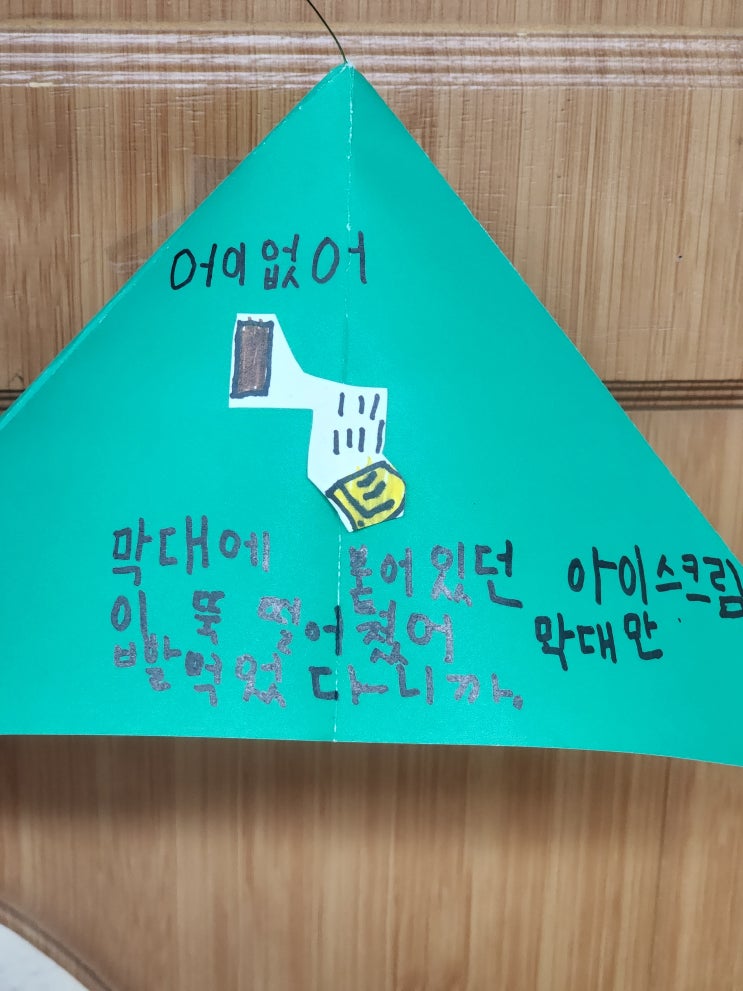 어이없어
막대에 붙어있던 아이스크림
이 뚝 떨어졌어 막대만
빨먹었다니까.